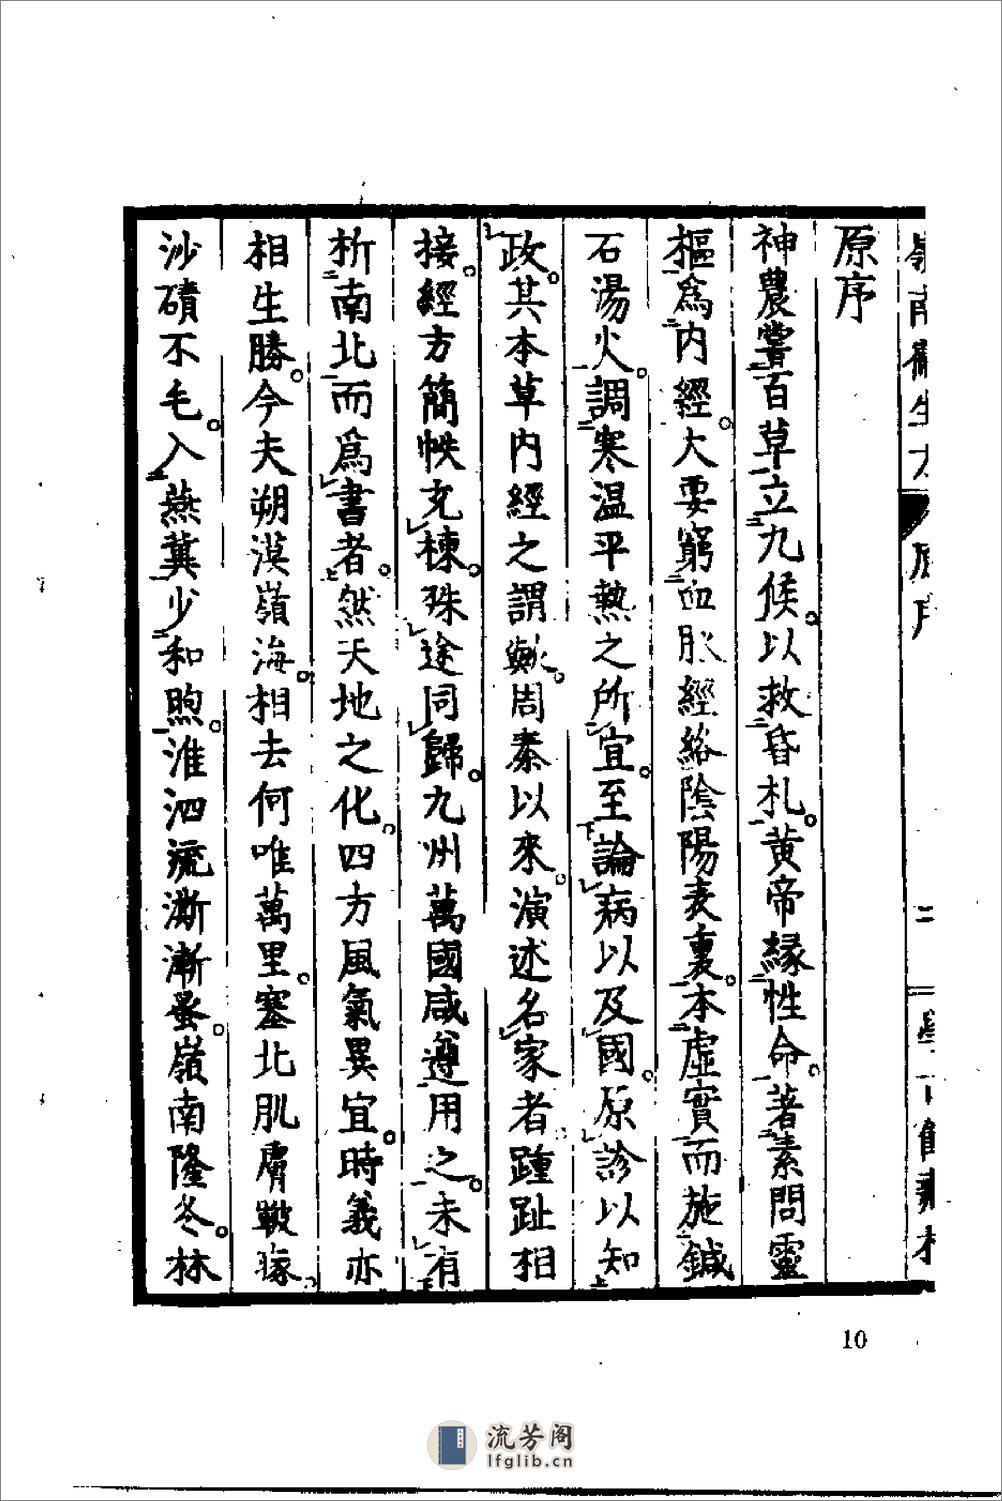 嶺南衛生方 原序
原序
神農嘗百草立九候以救昏札。黄帝縁性命。著素問靈
樞爲内經。大要窮血脉經絡陰陽表裏。本虛實而施鍼
石湯火。調寒温平熱之所宜。至論病以及國。原診以知
政。其本草内經之謂歟。周秦以來。演述名家者踵趾相
接。經方簡帙充棟。殊途同歸。九州萬國咸遵用之。未有
析南北而爲書者。然天地之化。四方風氣異宜。時義亦
相生勝。今夫朔漠嶺海。相去何啻萬里。塞北肌膚皸瘃。
沙磧不毛。入燕冀少和煦。淮泗流澌漸蚤。嶺南隆冬。林
10
流芳阁
lfglib.cn